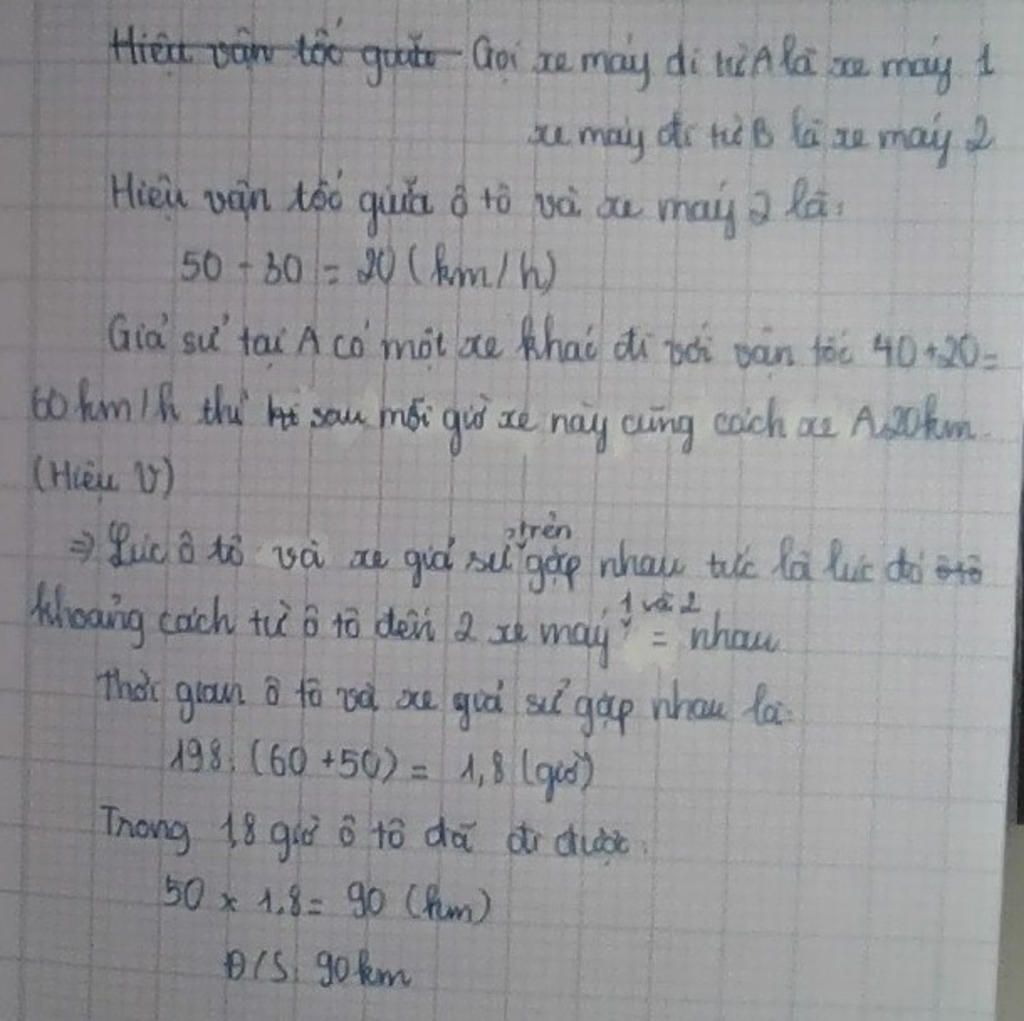 Hiệu vận tốc giữa Gọi xe máy đi từ A là xe máy 1
xe máy đi từ B là xe máy 2
Hiệu vận tốc giữa ô tô và xe máy 2 là:
50 - 30 = 20 (km/h)
Giả sử tại A có một xe khác đi với vận tốc 40+20=
60km/h thì sau mỗi giờ xe này cũng cách xe A 20km.
(Hiệu V)
=> Lúc ô tô và xe giả sử trên gặp nhau tức là lúc đó ô tô
khoảng cách từ ô tô đến 2 xe máy 1 và 2 = nhau
Thời gian ô tô và xe giả sử gặp nhau là:
198 : (60 + 50) = 1,8 (giờ)
Trong 1,8 giờ ô tô đã đi được:
50 x 1,8 = 90 (km)
Đ/S: 90km